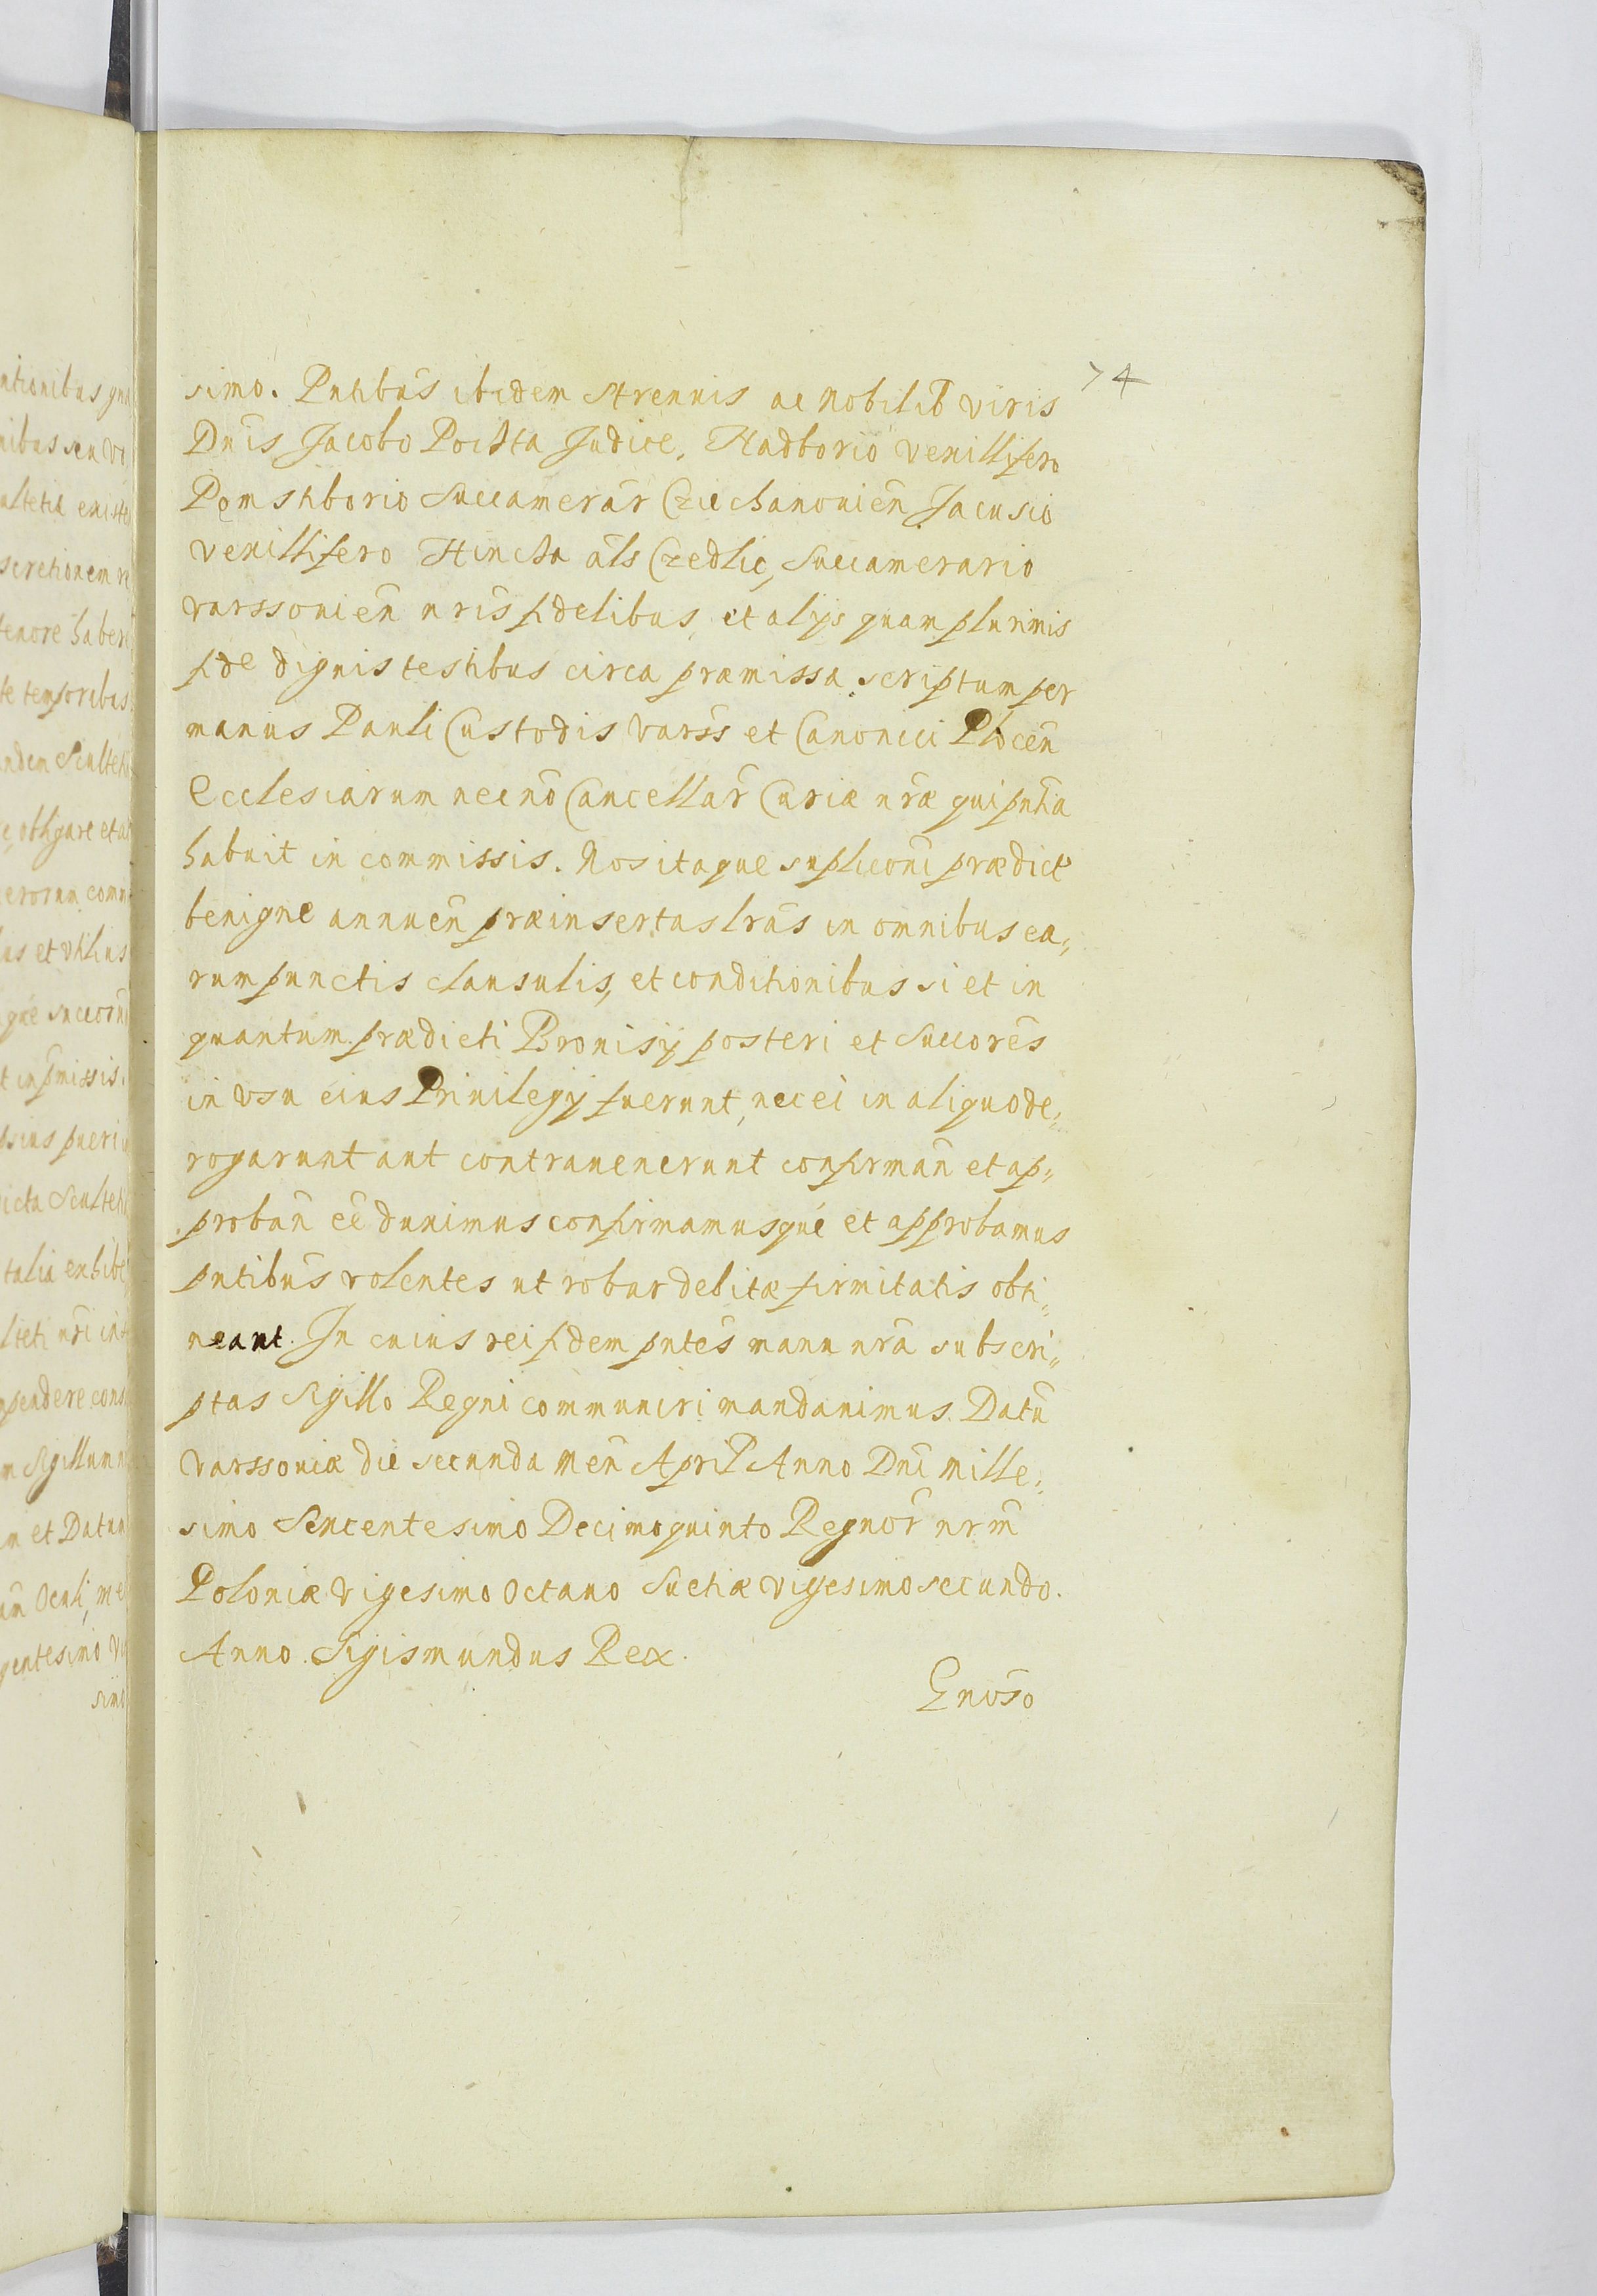 74
simo. Pntibus ibidem strenuis ac nobilib viris
Dnis Jacobo Judice, Nadborio vexillifero
Pomstiborio Succamerar Cziechanouien Jacusio
vexillifero Hincha als Czedlic, Succamerario
varssouien nris fidelibus, et alijs quam plurimis
fide dignis testibus circa præmissa, scriptum per
manus Pauli Custodis varss et Canonici Plocen
Ecclesiarum necnō Cancellar Curiæ nræ qui pntia
habuit in commissis. Nos itaque supliconi prædict
benigne annuen præinsertas lras in omnibus ea„
rum punctis clausulis, et conditionibus si et in
quantum prædicti Bronisij posteri et Succores
in vsu eius Priuilegij fuerunt, nec ei in aliquo de„
rogarunt aut contrauenerunt confirman et ap„
proban ce duximus confirmamusque et approbamus
pntibus volentes ut robur debitæ firmitatis obti„
neant. In cuius rei fidem pntes manu nra subscri„
ptas Sigillo Regni communiri mandauimus. Datu
varssouiæ die secunda Men April Anno Dni Mille„
simo Sexcentesimo Decimoquinto Regnor nrm
Poloniæ Vigesimo Octauo Suetiæ vigesimo secundo.
Anno. Sigismundus Rex.